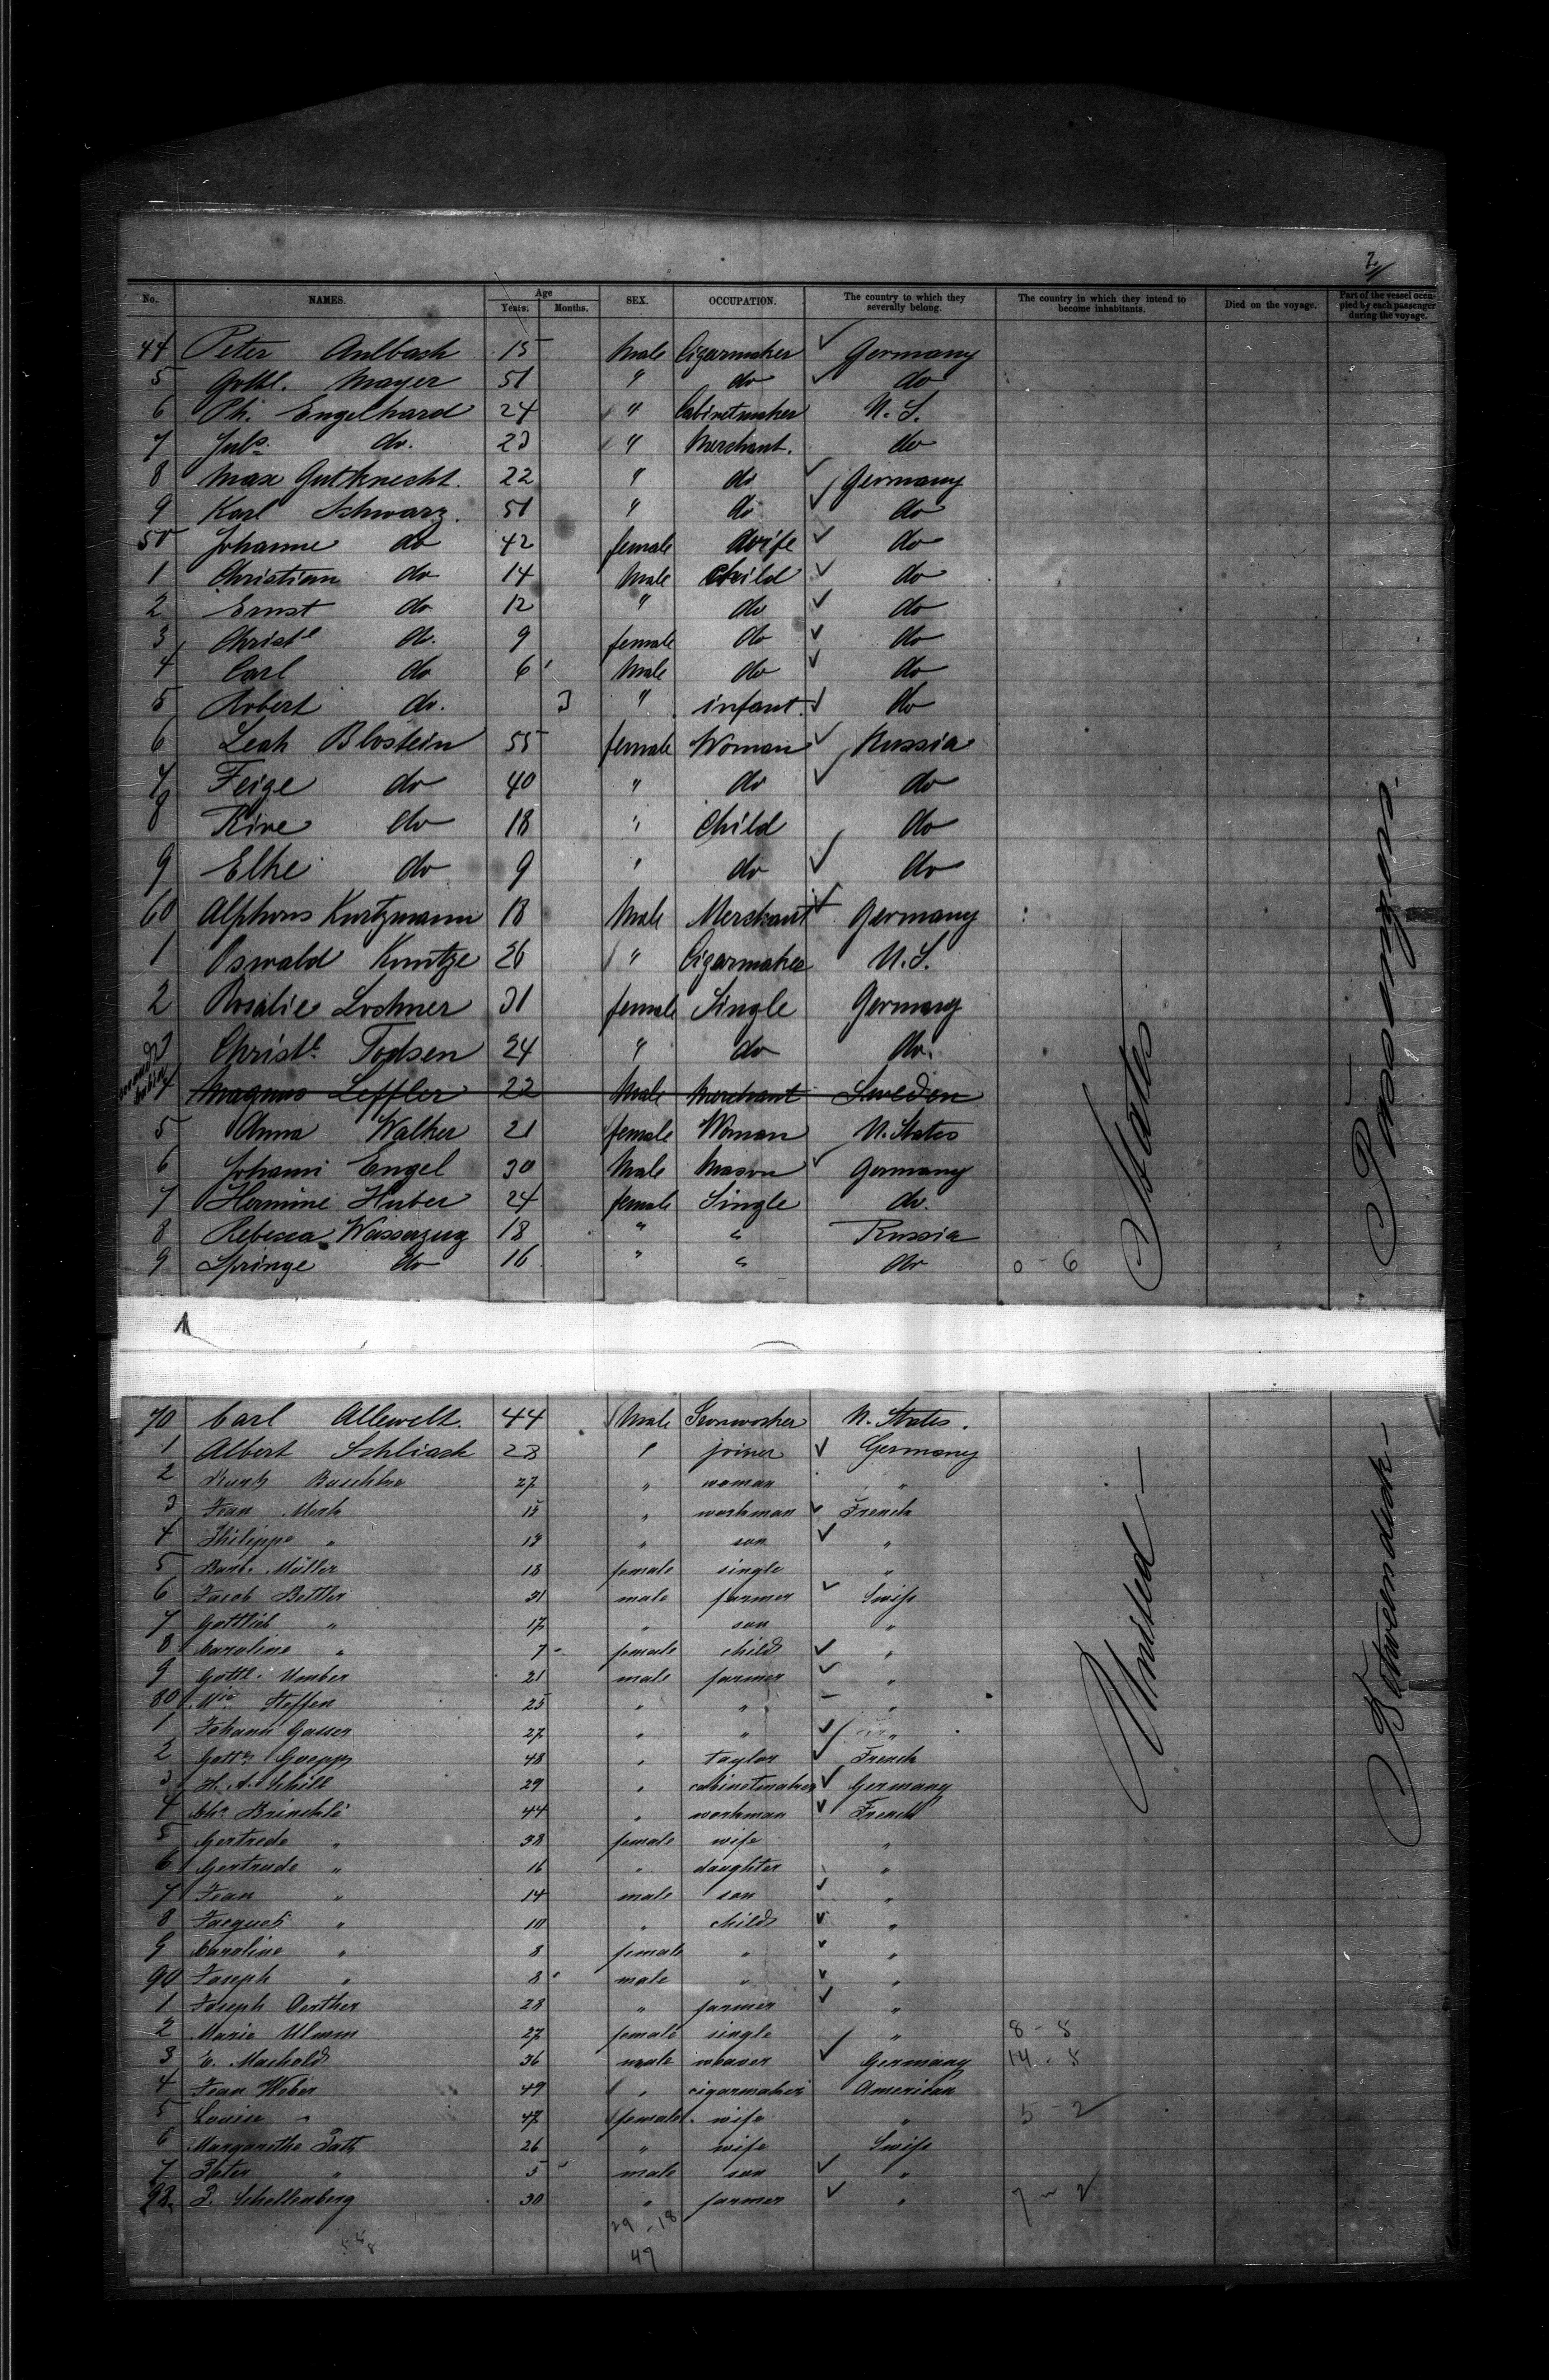 2
No. NAMES. Age Years. Months. SEX. OCCUPATION. The country to which they severally belong. The country in which they intend to become inhabitants. Died on the voyage. Part of the vessel occupied by each passenger during the voyage.
44 Peter Aulbach 15 Male Cigarmaker Germany
5 Gottl. Mayer 51 " do do
6 Ph. Engelhard 24 " Cabinetmaker U. S.
7 Juls. do. 23 " Merchant. do
8 Max Gutknecht. 22 " do Germany
9 Karl Schwarz. 51 " do do
50 Johanne do 42 female Wife do
1 Christian do 14 Male Child do
2 Ernst do 12 " do do
3 Christe do. 9 female do do
4 Carl do 6 Male do do
5 Robert do. 3 " infant. do
6 Leah Blostein 55 female Woman Russia
7 Feige do 40 " do do
8 Rive do 18 " Child do
9 Elke do 9 " do do
60 Alphons Kurtzmann 18 Male Merchant Germany
1 Oswald Kuntze 26 " Cigarmaker U. S.
2 Rosalie Loshner 31 female Single Germany
3 Christe. Todsen 24 " do do.
4 Magnus Leffler 22 Male Merchant Sweden
5 Anna Walker 21 female Woman U. States
6 Johann Engel 30 Male Mason Germany
7 Hermine Huber 24 female Single do.
8 Rebecca Wasserzug 18 " " Russia
9 Springe do 16 " " do 0 - 6
States
Passengers.
70 Carl Allewelt. 44 Male Ironworker U. States.
1 Albert Schliack 28 " joiner Germany
2 27 " woman "
3 Jean Merk 15 " workman French
4 Philippe " 19 " son "
5 Barb. Müller 18 female single "
6 Jacob Bettler 31 male farmer Swiss
7 Gottlieb " 17 " son "
8 Caroline " 7 female child "
9 Gottl. Umber 21 male farmer "
80 Steffen 25 " " "
1 Johann Gasser 27 " " "
2 Goepp 48 " taylor French
3 H. A. Schill 29 " cabinetmaker Germany
4 Chr. Brinckle 44 " workman French
5 Gertrude " 38 female wife "
6 Gertrude " 16 " daughter "
7 Jean " 14 male son "
8 Jacques " 10 " child "
9 Caroline " 8 female " "
90 Joseph " 8 male " "
1 Joseph Oerther 28 " farmer "
2 Marie Ulmm 27 female single " 8 - 8
3 E. Machold 36 male weaver Germany 14 - 8
4 Jean Weber 49 " cigarmaker American
5 Louise " 47 female wife " 5 - 2
6 Margarethe Path 26 " wife Swiss
7 Peter " 5 male son "
98 J. Schellenberg 30 " farmer " 7 - 2
29 - 18
47
United
Betweendeck